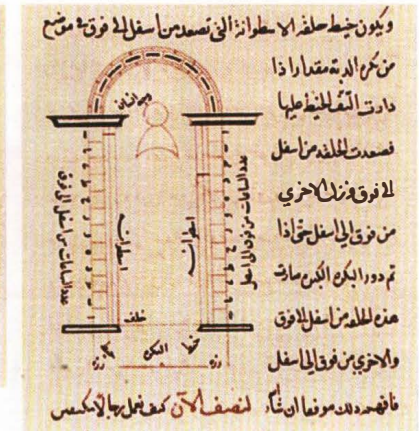 ويكون خيط حلقه الاسطوانة التى تصعد من اسفل الى فوق فى موضع
من بكرة الدبة مقدار اذا
دارت التف الخيط عليها
فصعدت الحلقه من اسفل
الى فوق ونزل الاخرى
من فوق الى اسفل حتى اذا
تم دور البكره الكبره صارت
هذه الحلقه من اسفل الى فوق
والاخرى من فوق الى اسفل
فافهم ذلك موفقا ان شاء
لنصف الآن كيف نعمل
عدد الساعات من اسفل الى فوق
اسطوانه
اسطوانه
عدد الساعات من فوق الى اسفل
حلقه
خيط
البكره
خيط
رزه
رزه